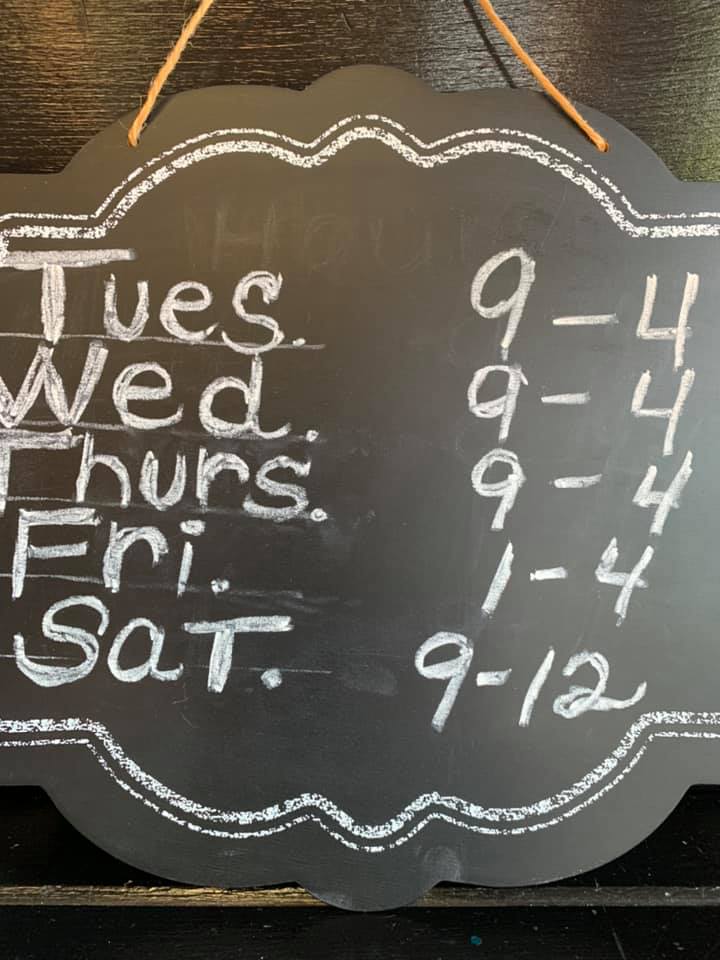 Tues. 9-4
Wed. 9-4
Thurs. 9-4
Fri. 1-4
Sat. 9-12